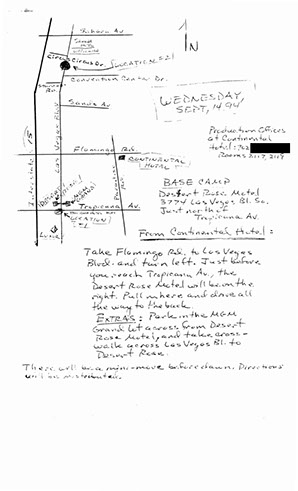 Sahara Av.
Circus Dr.
Convention Center Dr.
Sands Av.
Flamingo Rd.
CONTINENTAL
HOTEL
Tropicana Av.
Las Vegas Blvd
Interstate 15
N
WEDNESDAY,
SEPT. 14 94
Production Offices
at Continental
Hotel: 702
Rooms 2117, 2119
BASE CAMP
Desert Rose Motel
3774 Las Vegas Bl. So.
Just north of
Tropicana Av.
From Continental Hotel:
Take Flamingo Rd. to Las Vegas
Blvd. and turn left. Just before
you reach Tropicana Av., the
Desert Rose Motel will be on the
right. Pull in here and drive all
the way to the back.
EXTRAS: Park in the MGM
Grand lot across from Desert
Rose Motel, and take cross-
walk across Las Vegas Bl. to
Desert Rose.
There will be a mini-move before dawn. Directions
will be distributed.